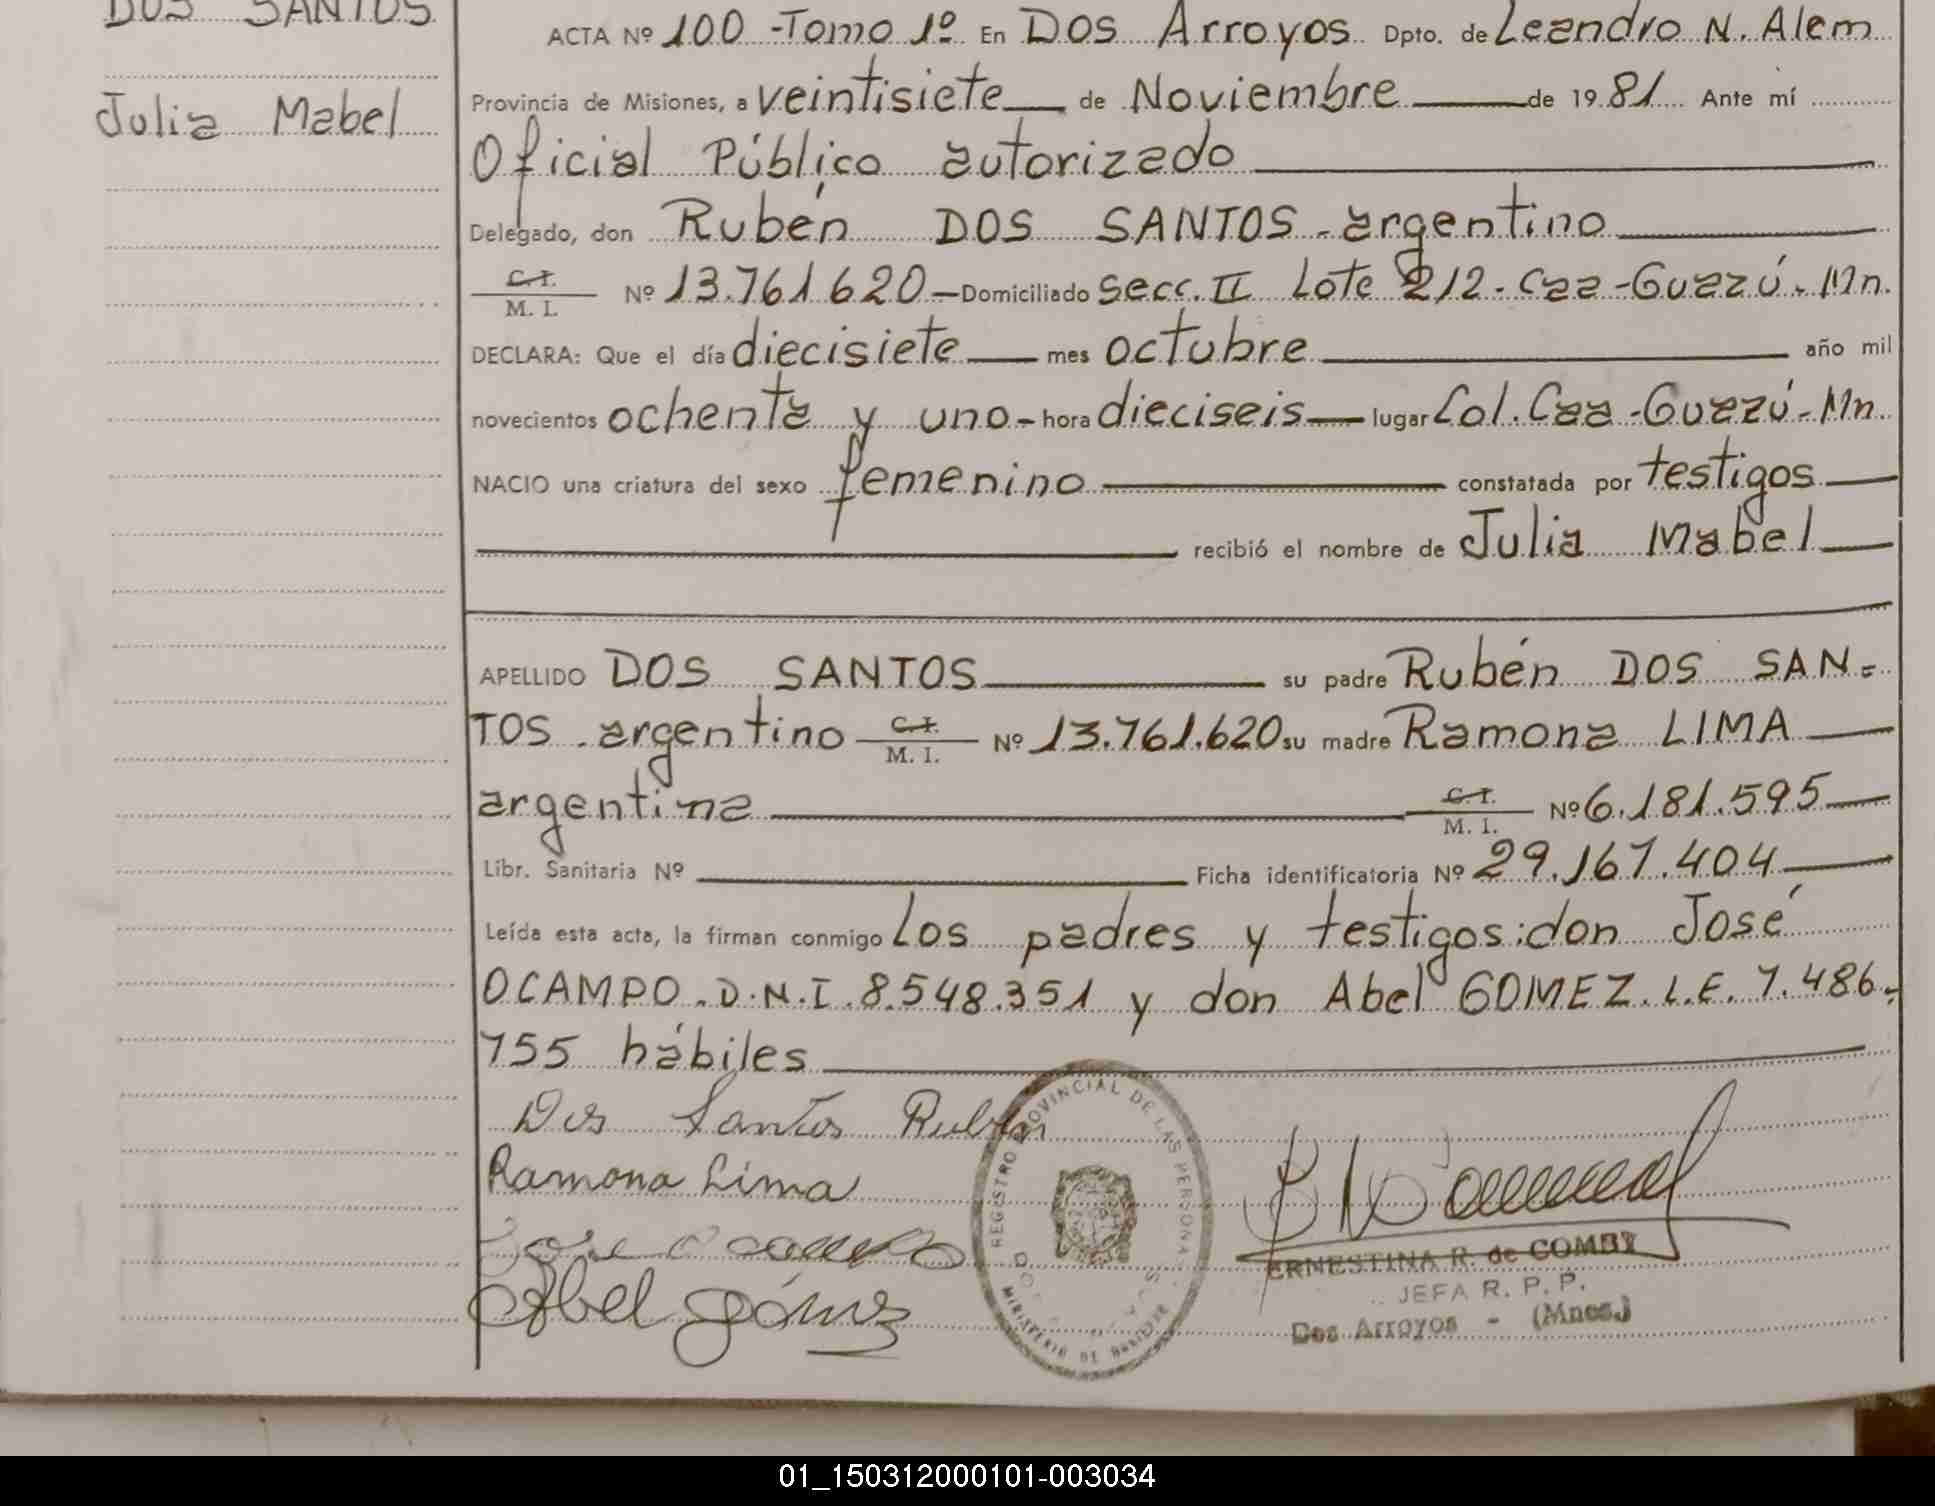 DOS SANTOS
Julia Mabel
ACTA Nº 100 -Tomo 1º En Dos Arroyos Dpto. de Leandro N. Alem
Provincia de Misiones, a veintisiete de Noviembre de 1981 Ante mí
Oficial Público autorizado
Delegado, don Rubén DOS SANTOS - argentino
C.I.
M. I. Nº 13.761.620 - Domiciliado secc. II Lote 212 - Caa-Guazú - Mn.
DECLARA: Que el día diecisiete mes octubre año mil
novecientos ochenta y uno - hora dieciseis lugar Col. Caa-Guazú - Mn.
NACIO una criatura del sexo femenino constatada por testigos
recibió el nombre de Julia Mabel
APELLIDO DOS SANTOS su padre Rubén DOS SAN=
TOS. argentino C.I.
M. I. Nº 13.761.620 su madre Ramona LIMA
argentina C.I.
M. I. Nº 6.181.595
Libr. Sanitaria Nº Ficha identificatoria Nº 29.167.404
Leída esta acta, la firman conmigo los padres y testigos: don José
OCAMPO. D.N.I. 8.548.351 y don Abel GOMEZ. L.E. 7.486.
755 hábiles
Dos Santos Rubén
Ramona Lima
José Ocampo
Abel Gómez
REGISTRO PROVINCIAL DE LAS PERSONAS
MINISTERIO DE
ERNESTINA R. de
JEFA R. P. P.
Dos Arroyos - (Mnes.)
01_150312000101-003034